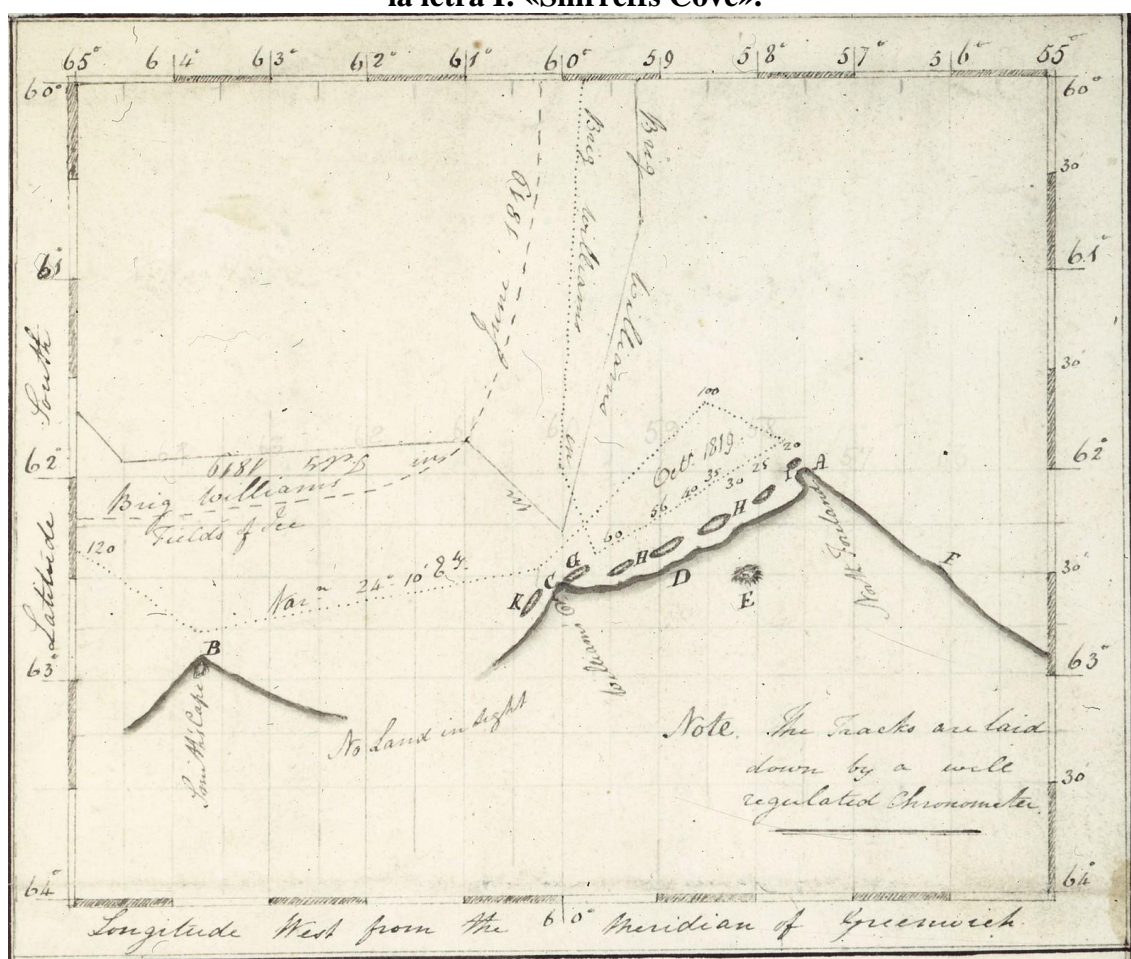 la letra I: «Shirreffs Cove».
65° 64° 63° 62° 61° 60° 59 58° 57° 56° 55°
60° 60°
30'
61 61°
30'
62° 62°
30'
63 63°
30'
64° 64
Latitude South
June 1819
Brig Williams
Brig Williams
Brig Williams
Fields of Ice
120
Varn 24° 10' Ely.
Octr. 1819
100
20
25
30
35
40
56
60
A
I
H
H
G
C
K
D
E
F
B
North Foreland
Williams
Smiths Cape
No Land in sight
Note. The Tracks are laid
down by a well
regulated Chronometer.
60°
Longitude West from the Meridian of Greenwich.